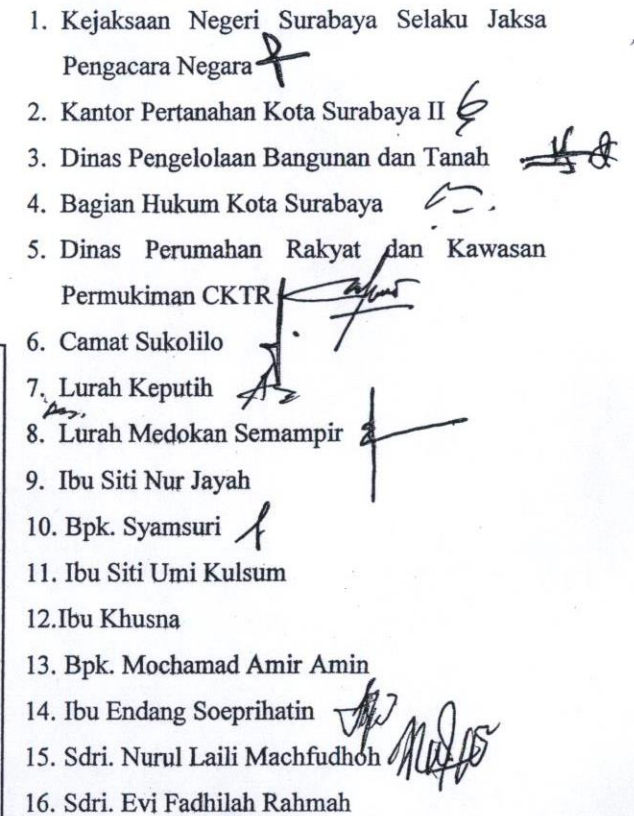 1. Kejaksaan Negeri Surabaya Selaku Jaksa
Pengacara Negara
2. Kantor Pertanahan Kota Surabaya II
3. Dinas Pengelolaan Bangunan dan Tanah
4. Bagian Hukum Kota Surabaya
5. Dinas Perumahan Rakyat dan Kawasan
Permukiman CKTR
6. Camat Sukolilo
7. Lurah Keputih
8. Lurah Medokan Semampir
9. Ibu Siti Nur Jayah
10. Bpk. Syamsuri
11. Ibu Siti Umi Kulsum
12.Ibu Khusna
13. Bpk. Mochamad Amir Amin
14. Ibu Endang Soeprihatin
15. Sdri. Nurul Laili Machfudhoh
16. Sdri. Evi Fadhilah Rahmah